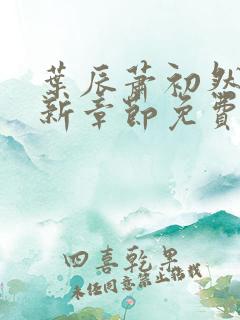 葉辰蕭初然
新章節免費
四喜乾果
未經同意禁止搭載